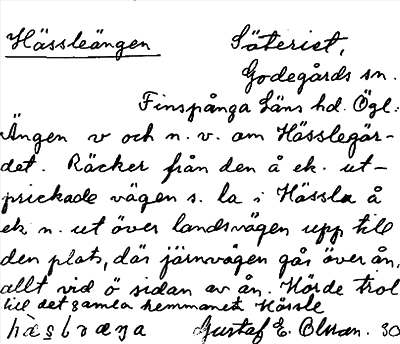 Hässleängen Säteriet,
Godegårds sn.
Finspånga Läns hd. Ögl.
Ängen v och n. v. om Hässlegär-
det. Räcker från den å ek. ut-
prickade vägen s. la i Hässla å
ek. n. ut över landsvägen upp till
den plats, där järnvägen går över ån,
allt vid ö sidan av ån. Hörde trol
till det gamla hemmanet Hässle
Gustaf E. Olson. 30